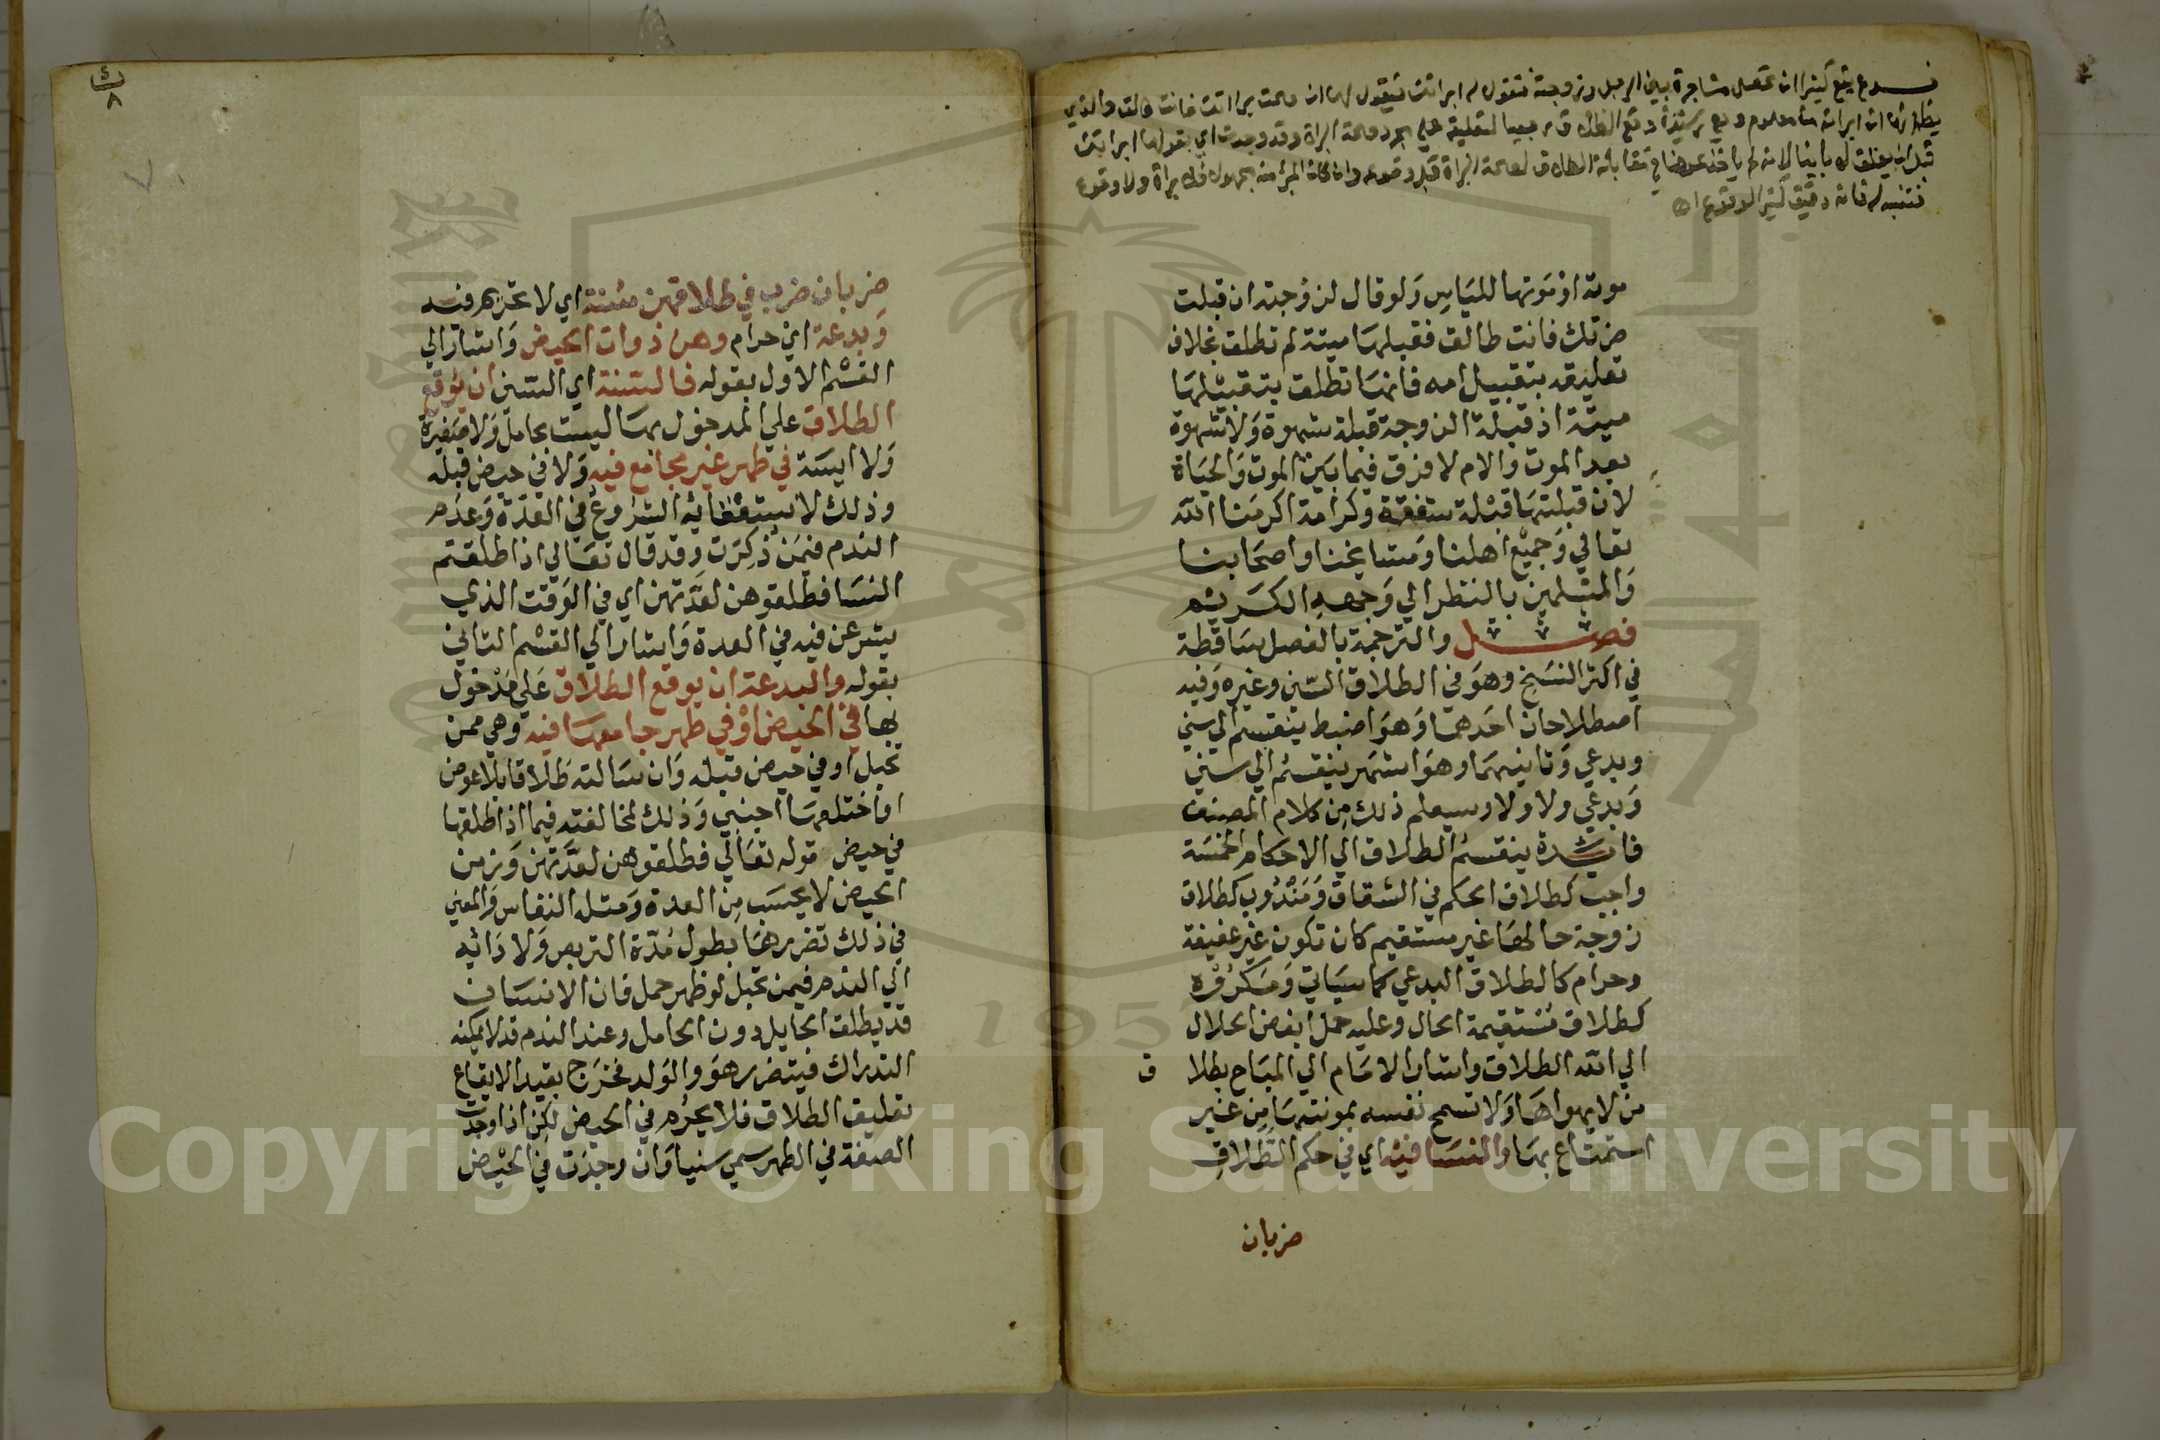 فرع يقع كثيرا ان تحصل مشاجرة بين الرجل وزوجته فتقول له ابراتك فيقول لها ان صحت براتك فانت طالق والذي
يظهر انها ان ابراته من معلوم وهي رشيدة وقع الطلاق رجعيا لتعليقه علي مجرد صحة البراة وقد وجدت اي بقولها ابراتك
قبل ان يعلق لا باينا لانه لم ياخذ عوضا في مقابلة الطلاق لصحة البراة قبل وقوعه وان كان المبرأ منه مجهولا فلا براة ولا وقوع
فتنبه له فانه دقيق كثير الوقوع اه
موته او موتها للياس ولو قال لزوجته ان قبلت
ضرتك فانت طالق فقبلها ميتة لم تطلق بخلاف
تعليقه بتقبيل امه فانها تطلق بتقبيلها
ميتة اذ قبلة الزوجة قبلة شهوة ولا شهوة
بعد الموت والام لا فرق فيها بين الموت والحياة
لان قبلتها قبلة شفقة وكرامة اكرمنا الله
تعالي وجميع اهلنا ومشايخنا واصحابنا
والمسلمين بالنظر الي وجهه الكريم
فصل والترجمة بالفصل ساقطة
في اكثر النسخ وهو في الطلاق السني وغيره وفيه
اصطلاحان احدهما وهو اضبط ينقسم الي سني
وبدعي وثانيهما وهو اشهر ينقسم الي سني
وبدعي ولا ولا وسيعلم ذلك من كلام المصنف
فايدة ينقسم الطلاق الي الاحكام الخمسة
واجب كطلاق الحكم في الشقاق ومندوب كطلاق
زوجة حالها غير مستقيم كان تكون غير عفيفة
وحرام كالطلاق البدعي كما سياتي ومكروه
كطلاق مستقيمة الحال وعليه حمل ابغض الحلال
الي الله الطلاق واشار الامام الي المباح بطلا
ق
من لا يهواها ولا تسمح نفسه بمونتها من غير
استمتاع بها والنسا فيه اي في حكم الطلاق
ضربان
٤
٨
ضربان ضرب في طلاقهن سنة اي لا تحريم فيه
وبدعة اي حرام وهن ذوات الحيض واشار الي
القسم الاول بقوله فالسنة اي السني ان يوقع
الطلاق علي المدخول بها ليست بحامل ولا صغيرة
ولا ايسة في طهر غير مجامع فيه ولا في حيض قبله
وذلك لاستعقابه الشروع في العدة وعدم
الندم فيمن ذكرت وقد قال تعالي اذا طلقتم
النسا فطلقوهن لعدتهن اي في الوقت الذي
يشرعن فيه في العدة واشار الي القسم الثاني
بقوله والبدعة ان يوقع الطلاق علي مدخول
بها في الحيض او في طهر جامعها فيه وهي ممن
تحبل او في حيض قبله وان سالته طلاقا بلا عوض
او اختلعها اجنبي وذلك لمخالفته فيما اذا طلقها
في حيض قوله تعالي فطلقوهن لعدتهن وزمن
الحيض لا يحسب من العدة ومثله النفاس والمعني
في ذلك تضررها بطول مدة التربص ولادائه
الي الندم فيمن تحبل لو ظهر حمل فان الانسان
قد يطلق الحايل دون الحامل وعند الندم قد لا يمكنه
التدراك فيتضرر هو والولد فخرج بقيد الايقاع
تعليق الطلاق فلا يحرم في الحيض لكن اذا وجدت
الصفة في الطهر سمي سنيا وان وجدت في الحيض
Copyright © King Saud University
جامعة الملك سعود
195